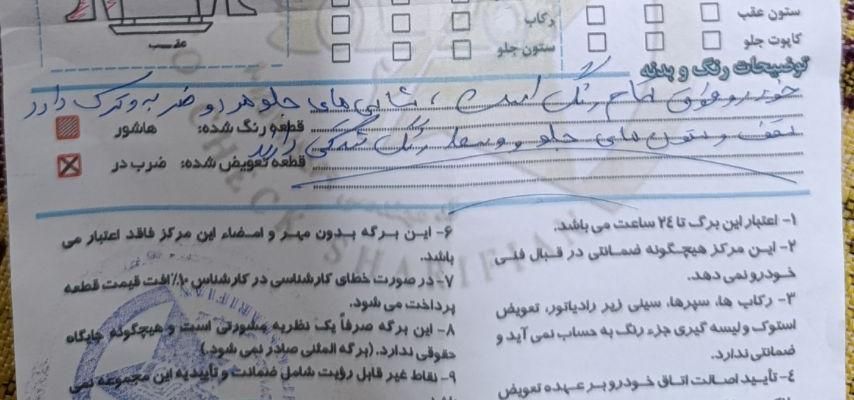 ستون عقب
رکاب
کاپوت جلو
ستون جلو
عقب
توضیحات رنگ و بدنه
خودرو فوق تمام رنگ است ، شاسی های جلو هر دو ضربه و ترک دارد
قطعه رنگ شده: هاشور
سقف و ستون های جلو و وسط رنگ
قطعه تعویض شده: ضربدر
۱- اعتبار این برگ تا ۲٤ ساعت می باشد.
۲- ایـن مرکز هیچگونه ضمـانتی در قبـال فنـی
خـودرو نمی دهد.
۳- رکاب ها، سپرها، سینی زیر رادیاتور، تعویض
استوک و لیسه گیری جزء رنگ به حساب نمی آید و
ضمانتی ندارد.
٤- تأیید اصالت اتاق خودرو بر عهده تعویض
۶- ایـن بـرگه بـدون مهـر و امـضاء این مرکز فاقد اعتبار می
باشد.
۷- در صورت خطای کارشناسی در کارشناس ۱۰٪ افت قیمت قطعه
پرداخت می شود.
۸- این برگه صرفاً یک نظریه مشورتی است و هیچگونه جایگاه
حقوقی ندارد. (برگه المثنی صادر نمی شود.)
۹- نقاط غیر قابل رؤیت شامل ضمانت و تأییدیه این مجموعه نمی
CHECK SHARIFIAN